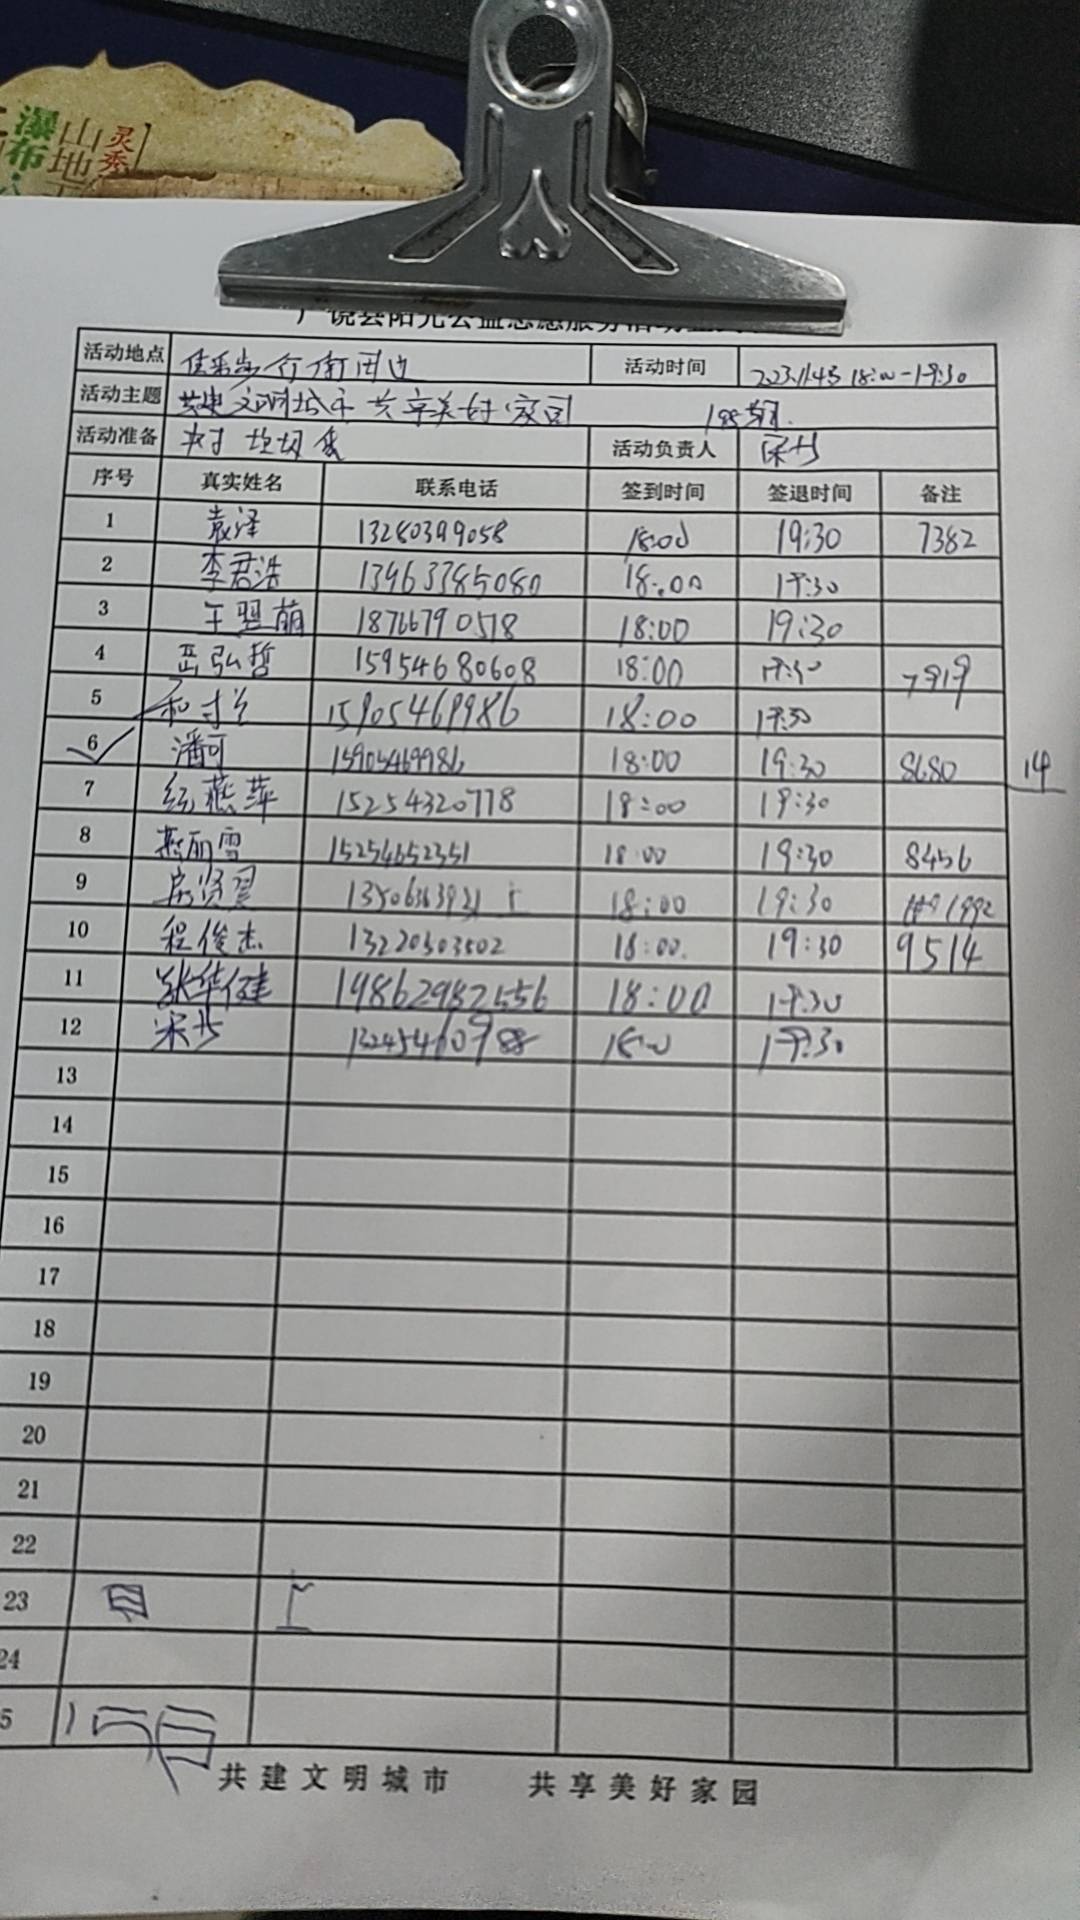 瀑布
山地
灵秀
广饶县阳光公益志愿服务活动
活动地点 佳乐步行街周边 活动时间 2023.11.4号 18:00-19:30
活动主题 共建文明城市 共享美好家园
活动准备 垃圾袋 活动负责人
序号 真实姓名 联系电话 签到时间 签退时间 备注
1 袁泽 13280399058 18:00 19:30 7382
2 李君浩 13963385080 18:00 19:30
3 王翌萌 18766790518 18:00 19:30
4 岳弘哲 15954680608 18:00 19:30 7919
5 15905469986 18:00 19:30
6 潘可 15905469986 18:00 19:30 8680 14
7 燕萍 15254320778 18:00 19:30
8 燕丽雪 15254652351 18:00 19:30 8456
9 房贤翌 18:00 19:30 1992
10 程俊杰 13220303502 18:00 19:30 9514
11 张华健 19862982556 18:00 19:30
12 13245460988 18:00 19:30
13
14
15
16
17
18
19
20
21
22
23
24
5
共建文明城市 共享美好家园